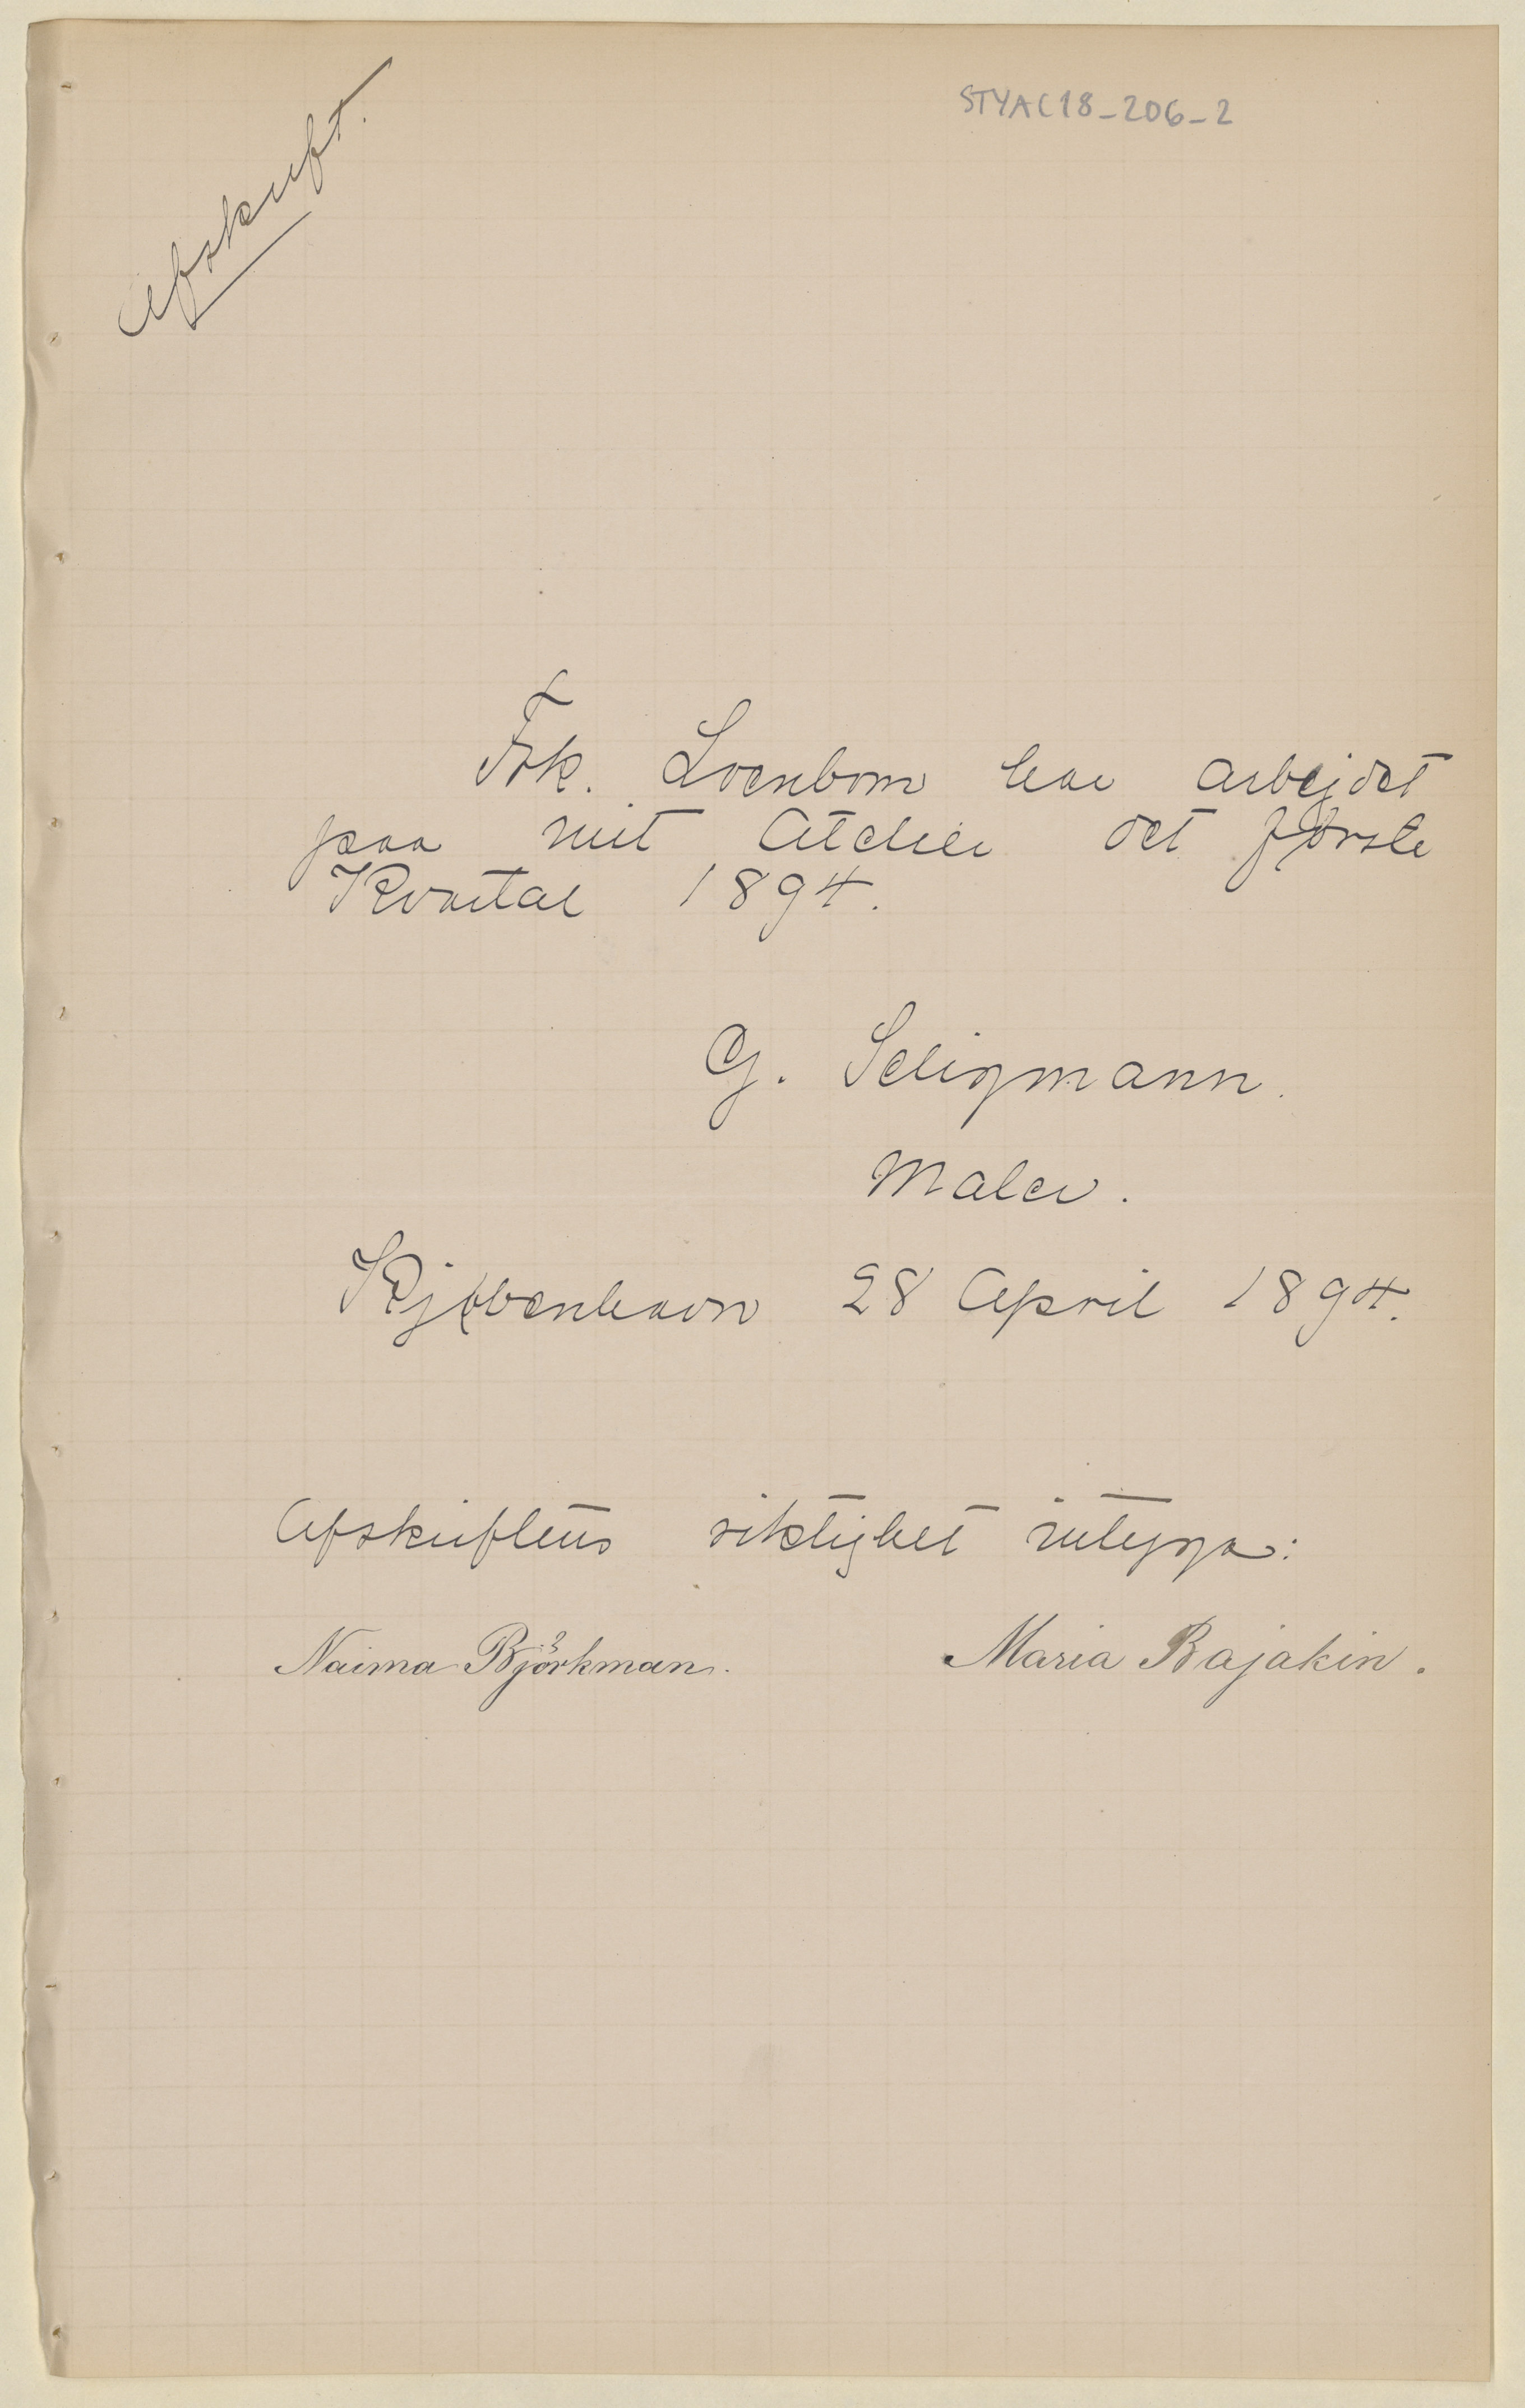 STYAC18_206_2
Afskrift.
Frk. Loenbom har arbejdet
paa mit Atelier det første
Kvartal 1894.
G. Seligmann.
Maler.
Kjøbenhavn 28 April 1894.
Afskriftens riktighet intyga:
Naima Björkman.
Maria Bajakin.